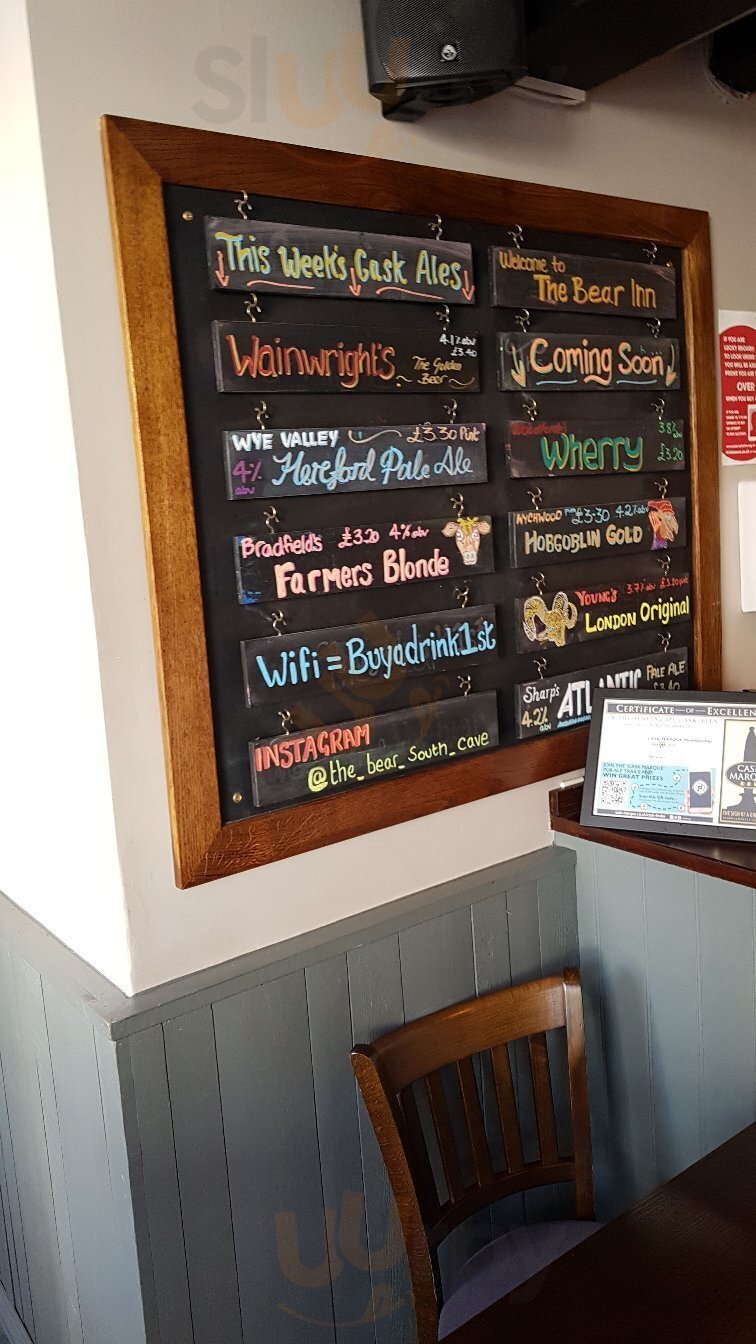 This Week's Cask Ales
Wainwright's
4.1% abv
£3.40
The Golden
Beer
WYE VALLEY
£3.30 Pint
4%
abv
Hereford Pale Ale
Bradfield's £3.20 4% abv
Farmers Blonde
Wifi = Buyadrink1st
INSTAGRAM
@the_bear_South_cave
Welcome to
The Bear Inn
Coming Soon
Wherry
3.8%
abv
£3.20
WYCHWOOD £3.30 4.2% abv
HOBGOBLIN GOLD
YOUNG'S 3.7% abv £3.20
LONDON Original
Sharp's
4.2%
abv
ATLANTIC
PALE ALE
CERTIFICATE OF EXCELLEN
JOIN THE CASK MARQUE
WIN GREAT PRIZES
CAS
MARQU
IF YOU ARE
OVER